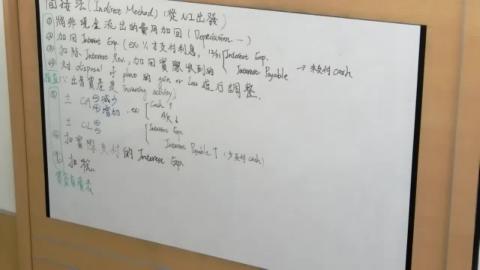 間接法 (Indirect Method) (從 NI 出發)
① 將非現金流出的費用加回 (Depreciation…)
② 加回 Interest Exp. (ex: 1/1 才支付利息, 12/31 { Interest Exp.
Interest Payable → 未支付 cash
③ 扣除 Interest Rev., 加回實際收到的
④ 對 disposal of plant 的 gain or Loss 進行調整.
出售資產是 Investing activity)
⑤ ± CA 減少
增加 ex { Cash ↑
A/R ↓
± CL { Interest Exp.
Interest Payable ↑ (少支付 cash)
扣實際支付的 Interest Exp.
⑦ 扣稅.